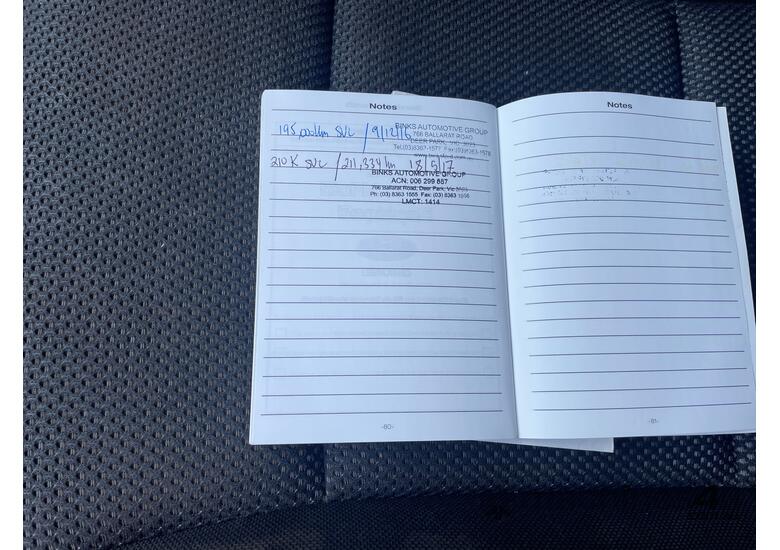 Notes
195,000km SVC / 9/12/16
BINKS AUTOMOTIVE GROUP
766 BALLARAT ROAD
DEER PARK, VIC 3023
Tel:(03)8367-1577 Fax:(03)9363-1578
210K SVC / 211,334 km 18/5/17
BINKS AUTOMOTIVE GROUP
ACN: 006 299 887
766 Ballarat Road, Deer Park, Vic 3023
Ph: (03) 8363 1555 Fax: (03) 8363 1556
LMCT: 1414
-80-
Notes
-81-